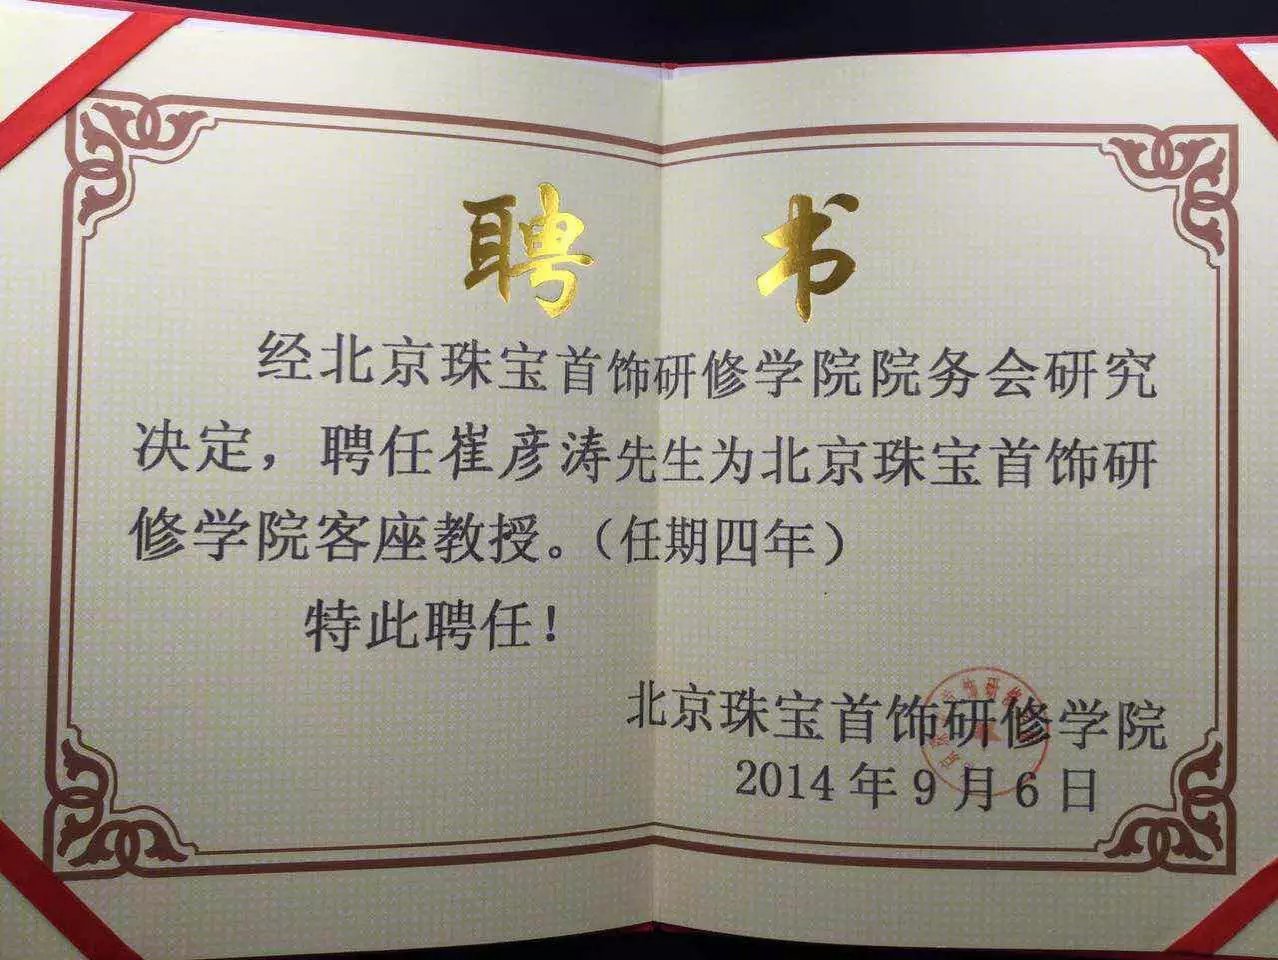 聘 书
经北京珠宝首饰研修学院院务会研究
决定，聘任崔彦涛先生为北京珠宝首饰研
修学院客座教授。（任期四年）
特此聘任！
北京珠宝首饰研修学院
2014年9月6日